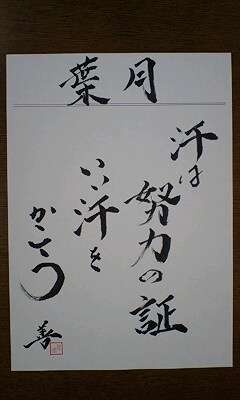 葉月
汗は
努力の証
いい汗を
かこう
善